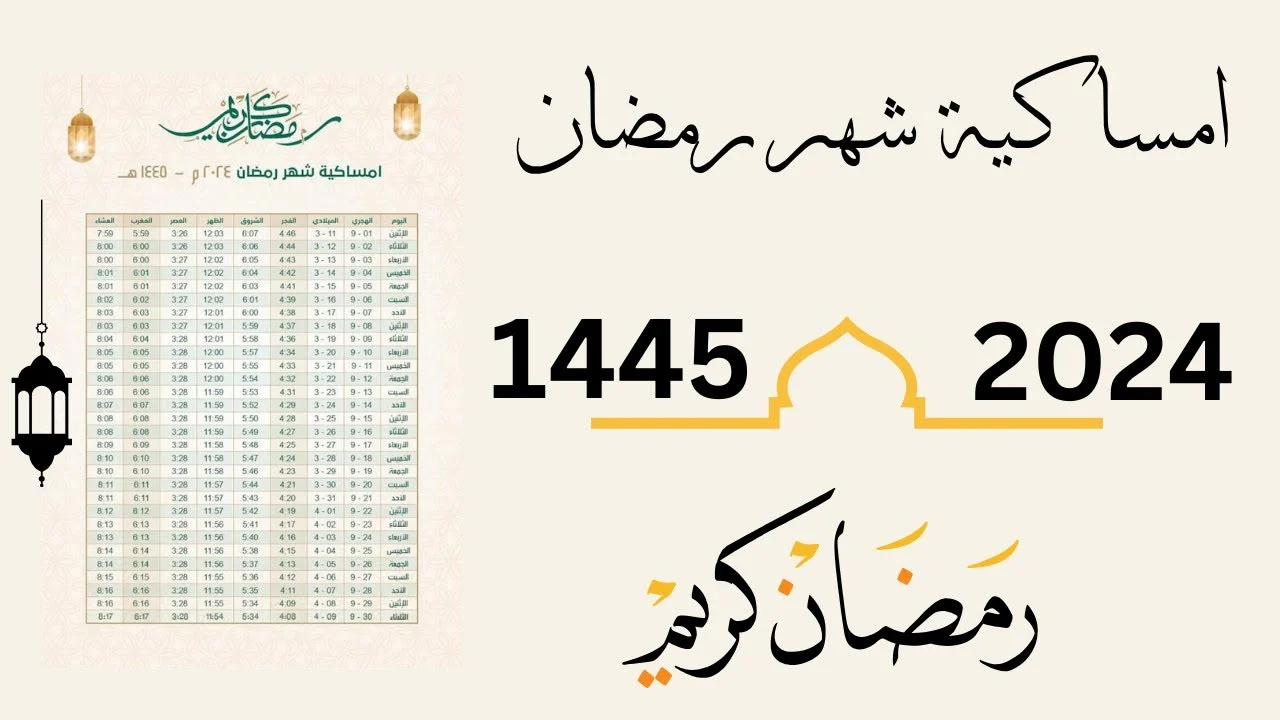 امساكية شهر رمضان
1445 2024
رَمَضَانْ كريمْ
رمضان كريم
امساكية شهر رمضان ٢٠٢٤ م - ١٤٤٥ هـ
اليوم الهجري الميلادي الفجر الشروق الظهر العصر المغرب العشاء
الإثنين 01 - 9 11 - 3 4:46 6:07 12:03 3:26 5:59 7:59
الثلاثاء 02 - 9 12 - 3 4:44 6:06 12:03 3:26 6:00 8:00
الاربعاء 03 - 9 13 - 3 4:43 6:05 12:02 3:27 6:00 8:00
الخميس 04 - 9 14 - 3 4:42 6:04 12:02 3:27 6:01 8:01
الجمعة 05 - 9 15 - 3 4:41 6:03 12:02 3:27 6:01 8:01
السبت 06 - 9 16 - 3 4:39 6:01 12:02 3:27 6:02 8:02
الاحد 07 - 9 17 - 3 4:38 6:00 12:01 3:27 6:03 8:03
الإثنين 08 - 9 18 - 3 4:37 5:59 12:01 3:27 6:03 8:03
الثلاثاء 09 - 9 19 - 3 4:36 5:58 12:01 3:28 6:04 8:04
الاربعاء 10 - 9 20 - 3 4:34 5:57 12:00 3:28 6:05 8:05
الخميس 11 - 9 21 - 3 4:33 5:55 12:00 3:28 6:05 8:05
الجمعة 12 - 9 22 - 3 4:32 5:54 12:00 3:28 6:06 8:06
السبت 13 - 9 23 - 3 4:31 5:53 11:59 3:28 6:06 8:06
الاحد 14 - 9 24 - 3 4:29 5:52 11:59 3:28 6:07 8:07
الإثنين 15 - 9 25 - 3 4:28 5:50 11:59 3:28 6:08 8:08
الثلاثاء 16 - 9 26 - 3 4:27 5:49 11:59 3:28 6:08 8:08
الاربعاء 17 - 9 27 - 3 4:25 5:48 11:58 3:28 6:09 8:09
الخميس 18 - 9 28 - 3 4:24 5:47 11:58 3:28 6:10 8:10
الجمعة 19 - 9 29 - 3 4:23 5:46 11:58 3:28 6:10 8:10
السبت 20 - 9 30 - 3 4:21 5:44 11:57 3:28 6:11 8:11
الاحد 21 - 9 31 - 3 4:20 5:43 11:57 3:28 6:11 8:11
الإثنين 22 - 9 01 - 4 4:19 5:42 11:57 3:28 6:12 8:12
الثلاثاء 23 - 9 02 - 4 4:17 5:41 11:56 3:28 6:13 8:13
الاربعاء 24 - 9 03 - 4 4:16 5:40 11:56 3:28 6:13 8:13
الخميس 25 - 9 04 - 4 4:15 5:38 11:56 3:28 6:14 8:14
الجمعة 26 - 9 05 - 4 4:13 5:37 11:56 3:28 6:14 8:14
السبت 27 - 9 06 - 4 4:12 5:36 11:55 3:28 6:15 8:15
الاحد 28 - 9 07 - 4 4:11 5:35 11:55 3:28 6:16 8:16
الإثنين 29 - 9 08 - 4 4:09 5:34 11:55 3:28 6:16 8:16
الثلاثاء 30 - 9 09 - 4 4:08 5:34 11:54 3:28 6:17 8:17